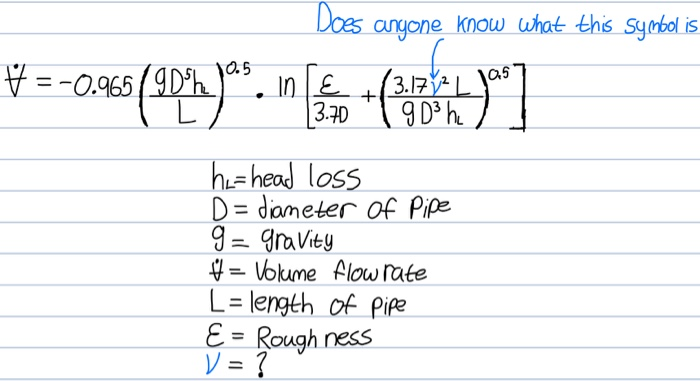 Does anyone know what this symbol is
V̶̇ = -0.965 (gD⁵h_L / L)^0.5 · ln [ε / 3.7D + (3.17ν² L / gD³ h_L)^0.5]
h_L = head loss
D = diameter of Pipe
g = gravity
V̶̇ = Volume flow rate
L = length of pipe
ε = Roughness
ν = ?